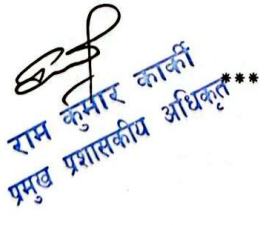 राम कुमार कार्की
प्रमुख प्रशासकीय अधिकृत***